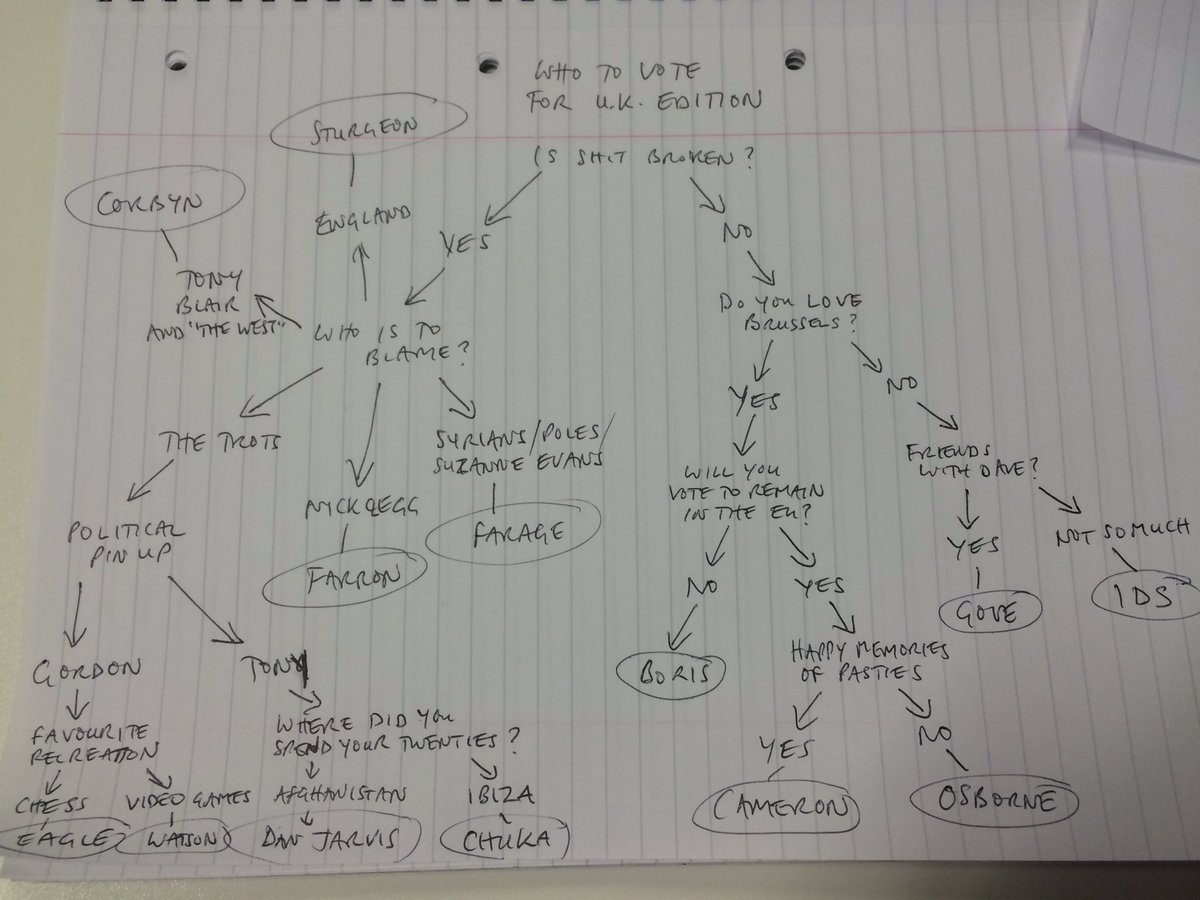 WHO TO VOTE
FOR U.K. EDITION
IS SHIT BROKEN?
STURGEON
CORBYN
ENGLAND
YES
NO
TONY
BLAIR
AND "THE WEST"
WHO IS TO
BLAME?
DO YOU LOVE
BRUSSELS?
YES
NO
THE TROTS
SYRIANS/POLES/
SUZANNE EVANS
FRIENDS
WITH DAVE?
WILL YOU
VOTE TO REMAIN
IN THE EU?
POLITICAL
PIN UP
NICK CLEGG
FARAGE
YES
NOT SO MUCH
FARRON
NO
YES
GOVE
IDS
GORDON
TONY
BORIS
HAPPY MEMORIES
OF PASTIES
FAVOURITE
RECREATION
WHERE DID YOU
SPEND YOUR TWENTIES?
YES
NO
CHESS
VIDEO GAMES
AFGHANISTAN
IBIZA
CAMERON
OSBORNE
EAGLE
WATSON
DAN JARVIS
CHUKA